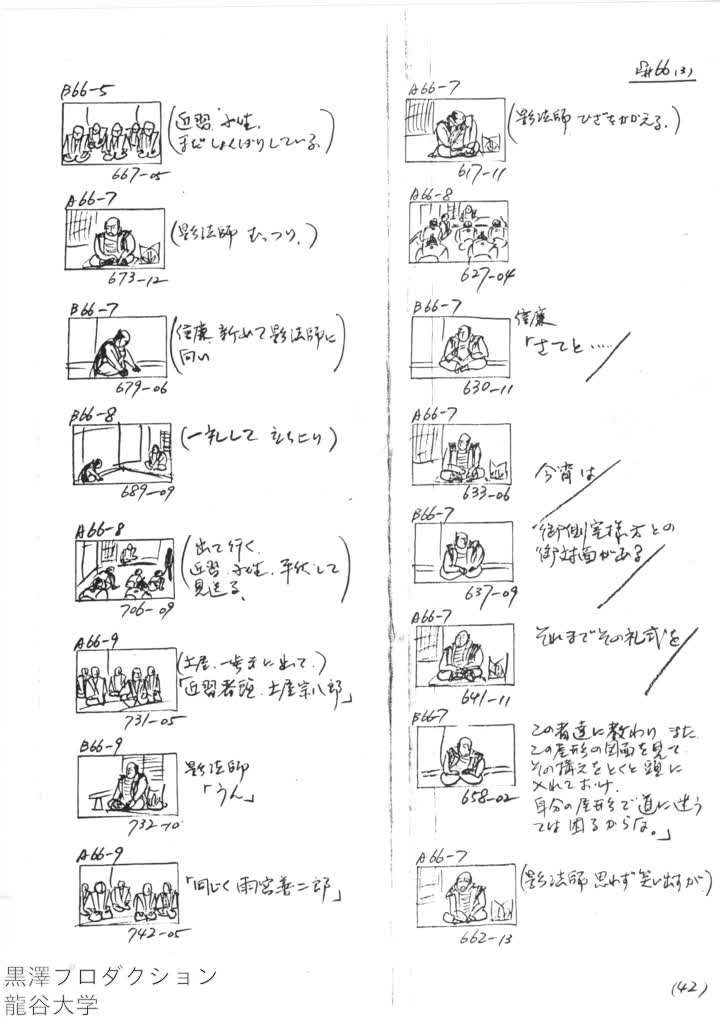 #66(3)
A66-7
(影法師 ひざをかゝえる。)
617-11
A66-8
627-04
B66-7
信廉
「さてと……
630-11
A66-7
今宵は
633-06
B66-7
御側室様方との
御対面がある
637-09
A66-7
それまでその礼式を
641-11
B66-7
この者達に教わり また
この屋形の図面を見て
その構えをとくと頭に
入れておけ
自分の屋形で道に迷う
ては困るからな。」
658-02
A66-7
(影法師 思わず笑い出すが)
662-13
B66-5
(近習、小姓、
まだしょんぼりしている。)
667-05
A66-7
(影法師 むっつり。)
673-12
B66-7
(信廉 新めて影法師に
向い)
679-06
B66-8
(一礼して 立ち上り)
689-09
A66-8
(出て行く。
近習、小姓、平伏して
見送る。)
706-09
A66-9
(土屋、一歩前に出て。)
「近習者頭、土屋宗八郎」
731-05
B66-9
影法師
「うん」
732-10
A66-9
「同じく雨宮善二郎」
742-05
(42)
黒澤プロダクション
龍谷大学